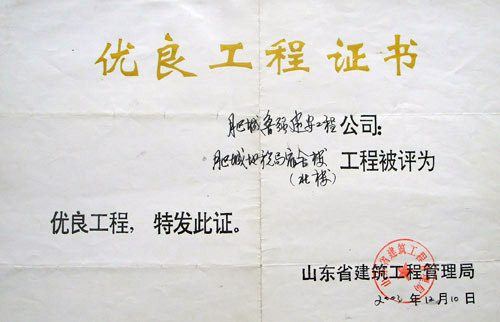 优良工程证书
肥城鲁强建安工程公司:
肥城地税局宿舍楼工程被评为
(北楼)
优良工程,特发此证。
山东省建筑工程管理局
山东省建筑工程管理局
2003年12月10日